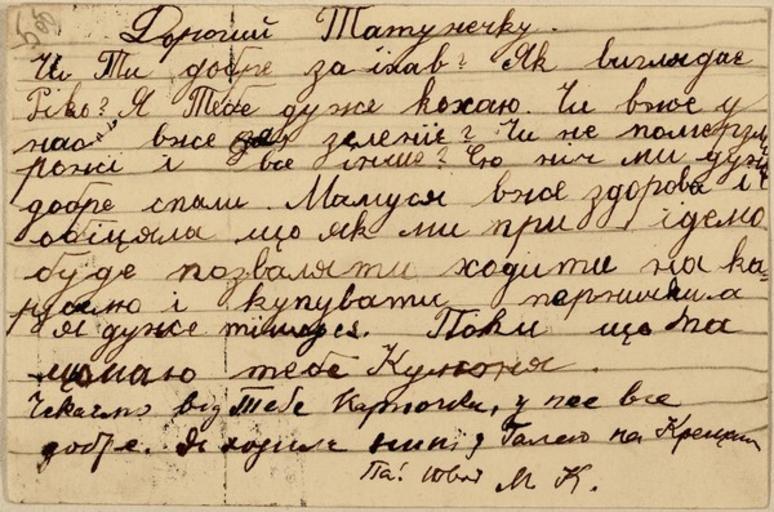 Дорогий Татунечку.
Чи Ти добре заїхав? Як виглядає
Ріко? Я Тебе дуже кохаю. Чи вже у
нас вже зеленіє? Чи не померзли
рожі і все інше? Сю ніч ми дуже
добре спали. Мамуся вже здорова і
обіцяла що як ми приїдемо
буде позваляти ходити на ка-
купувати пернички а
я дуже тішуся. Поки що та
цюмаю тебе
Чекаємо від Тебе карточки, у нас все
добре. Я ходила нині з Галею на
Па! твоя М К.